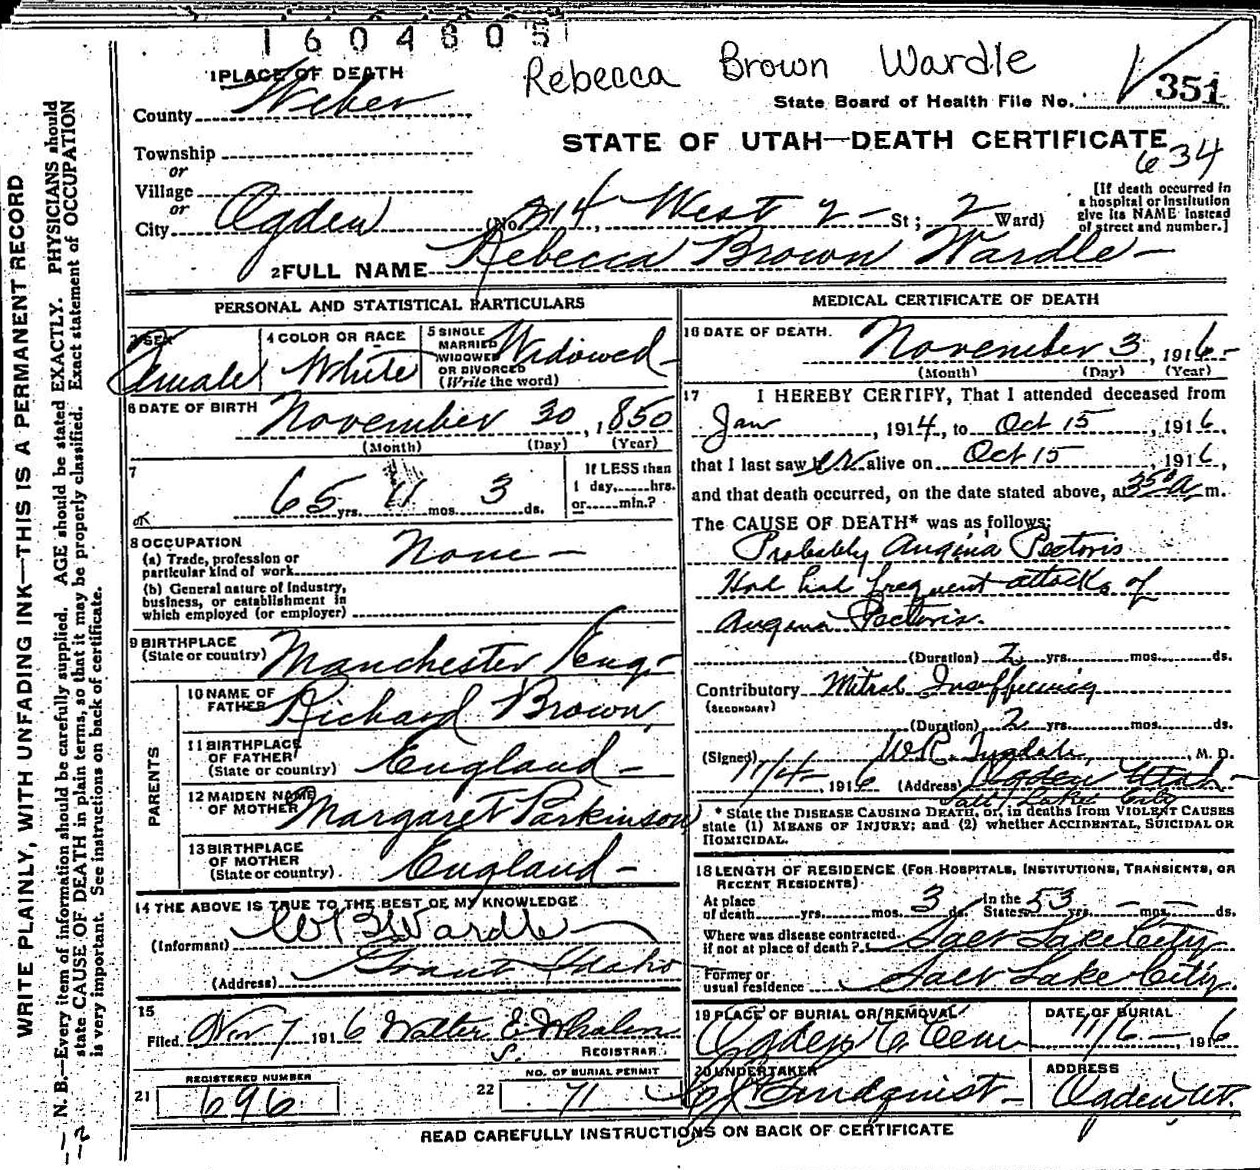 1604605
Rebecca Brown Wardle
1 PLACE OF DEATH
County Weber
State Board of Health File No. 351
Township
or
STATE OF UTAH—DEATH CERTIFICATE
634
Village
or
City Ogden (No. 214, West 2 - St; 2 Ward)
[If death occurred in a hospital or institution give its NAME instead of street and number.]
2 FULL NAME Rebecca Brown Wardle -
PERSONAL AND STATISTICAL PARTICULARS
3 SEX Female
4 COLOR OR RACE White
5 SINGLE MARRIED WIDOWED OR DIVORCED (Write the word) Widowed -
6 DATE OF BIRTH November 30, 1850
(Month) (Day) (Year)
7 65 yrs. 11 mos. 3 ds.
If LESS than 1 day,......hrs. or......min.?
8 OCCUPATION None -
(a) Trade, profession or particular kind of work
(b) General nature of industry, business, or establishment in which employed (or employer)
9 BIRTHPLACE (State or country) Manchester Eng.
PARENTS
10 NAME OF FATHER Richard Brown
11 BIRTHPLACE OF FATHER (State or country) England -
12 MAIDEN NAME OF MOTHER Margaret Parkinson
13 BIRTHPLACE OF MOTHER (State or country) England -
14 THE ABOVE IS TRUE TO THE BEST OF MY KNOWLEDGE
(Informant) Wardle
(Address) Grant Idaho
15 Filed Nov 7 1916 Walter E Whalen
REGISTRAR
REGISTERED NUMBER
21 696
NO. OF BURIAL PERMIT
22 71
MEDICAL CERTIFICATE OF DEATH
16 DATE OF DEATH. November 3, 1916 -
(Month) (Day) (Year)
17 I HEREBY CERTIFY, That I attended deceased from
Jan, 1914, to Oct 15, 1916,
that I last saw er alive on Oct 15, 1916,
and that death occurred, on the date stated above, at 350 a m.
The CAUSE OF DEATH* was as follows:
Probably Angina Pectoris
Had had frequent attacks of
Angina Pectoris.
(Duration) 2 yrs. mos. ds.
Contributory Mitral Insufficiency
(SECONDARY)
(Duration) 2 yrs. mos. ds.
(Signed) W.R. Tyndale, M. D.
11/4 -, 1916 (Address) Ogden Utah -
Salt Lake City
* State the DISEASE CAUSING DEATH, or, in deaths from VIOLENT CAUSES
state (1) MEANS OF INJURY; and (2) whether ACCIDENTAL, SUICIDAL OR
HOMICIDAL.
18 LENGTH OF RESIDENCE (FOR HOSPITALS, INSTITUTIONS, TRANSIENTS, OR
RECENT RESIDENTS)
At place of death yrs. mos. 3 ds. In the State 53 yrs. - mos. - ds.
Where was disease contracted if not at place of death? Salt Lake City
Former or usual residence Salt Lake City.
19 PLACE OF BURIAL OR REMOVAL Ogden C Cem
DATE OF BURIAL 11/6 - 1916
20 UNDERTAKER Lindquist -
ADDRESS Ogden Ut.
READ CAREFULLY INSTRUCTIONS ON BACK OF CERTIFICATE
WRITE PLAINLY, WITH UNFADING INK—THIS IS A PERMANENT RECORD
N. B.—Every item of information should be carefully supplied. AGE should be stated EXACTLY. PHYSICIANS should
state CAUSE OF DEATH in plain terms, so that it may be properly classified. Exact statement of OCCUPATION
is very important. See instructions on back of certificate.